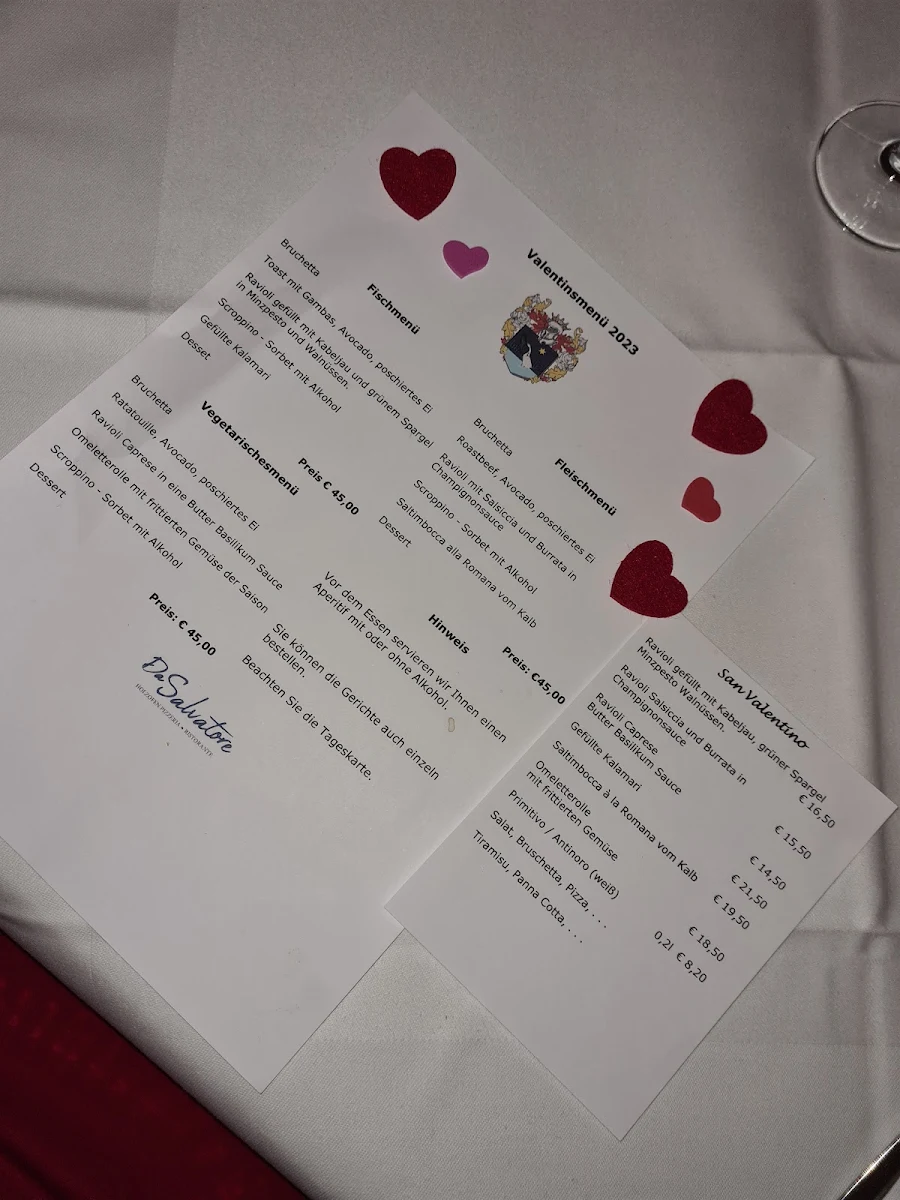 Valentinsmenü 2023
Fischmenü
Bruchetta
Toast mit Gambas, Avocado, poschiertes Ei
Ravioli gefüllt mit Kabeljau und grünem Spargel
in Minzpesto und Walnüssen.
Scroppino - Sorbet mit Alkohol
Gefüllte Kalamari
Desset
Preis € 45,00
Fleischmenü
Bruchetta
Roastbeef, Avocado, poschiertes Ei
Ravioli mit Salsiccia und Burrata in
Champignonsauce
Scroppino - Sorbet mit Alkohol
Saltimbocca alla Romana vom Kalb
Dessert
Preis: €45,00
Vegetarischesmenü
Bruchetta
Ratatouille, Avocado, poschiertes Ei
Ravioli Caprese in eine Butter Basilikum Sauce
Omeletterolle mit frittierten Gemüse der Saison
Scroppino - Sorbet mit Alkohol
Dessert
Preis: € 45,00
Hinweis
Vor dem Essen servieren wir Ihnen einen
Aperitif mit oder ohne Alkohol.
Sie können die Gerichte auch einzeln
bestellen.
Beachten Sie die Tageskarte.
Da Salvatore
HOLZOFEN PIZZERIA • RISTORANTE
San Valentino
Ravioli gefüllt mit Kabeljau, grüner Spargel
Minzpesto Walnüssen. € 16,50
Ravioli Salsiccia und Burrata in
Champignonsauce € 15,50
Ravioli Caprese
Butter Basilikum Sauce € 14,50
Gefüllte Kalamari € 21,50
Saltimbocca à la Romana vom Kalb € 19,50
Omeletterolle
mit frittierten Gemüse € 18,50
Primitivo / Antinoro (weiß) 0,2l € 8,20
Salat, Bruschetta, Pizza, . . .
Tiramisu, Panna Cotta, . . .